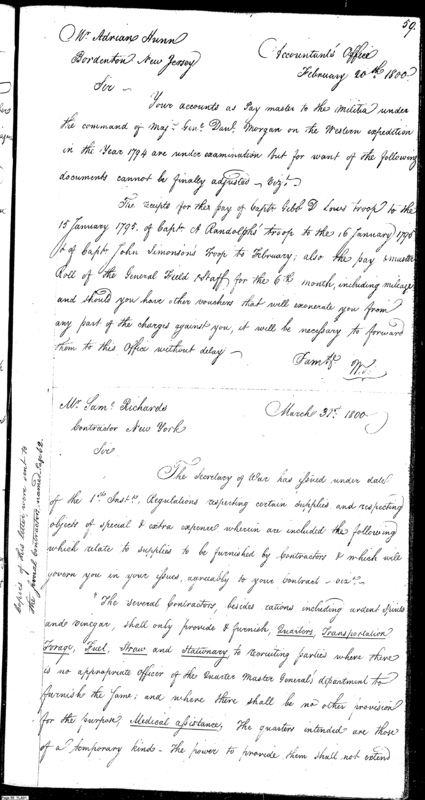 59.
Mr Adrian Hunn
Bordenton New Jersey
Accountants Office
February 20th 1800.
Sir
Your accounts as Pay master to the Militia under
the command of Majr Genl Danl Morgan on the Western expedition
in the Year 1794 are under examination but for want of the following
documents cannot be finally adjusted - Vizt
The receipts for the pay of Captn Gibb D Lows troop to the
15 January 1795. of Capt A Randolphs' troop to the 16 January 1795
& of Capt John Simonson's Troop to February; also the pay & muster
Roll of the General Field & Staff for the 6th month, including mileage
and should you have other vouchers that will exonerate you from
any part of the charges against you, it will be necessary to forward
them to this Office without delay -
I am &c
W.S.
Mr Saml Richards
Contractor New York
March 31st 1800
Sir
The Secretary of War has issued under date
of the 1st Instt, Regulations respecting certain supplies and respecting
objects of special & extra expence wherein are included the following
which relate to supplies to be furnished by Contractors & which will
govern you in your issues, agreeably to your Contract - vizt -
"The several Contractors, besides rations including ardent spirits
and vinegar, shall only provide & furnish, Quarters, Transportation
Forage, Fuel, Straw and Stationary, to recruiting parties where there
is no appropriate Officer of the Quarter Master Generals department to
furnish the same; and where there shall be no other provision
for the purpose, Medical assistance; The quarters intended are those
of a temporary kind - The power to provide them shall not extend
Copies of this letter were sent to
the several Contractors named page 62.